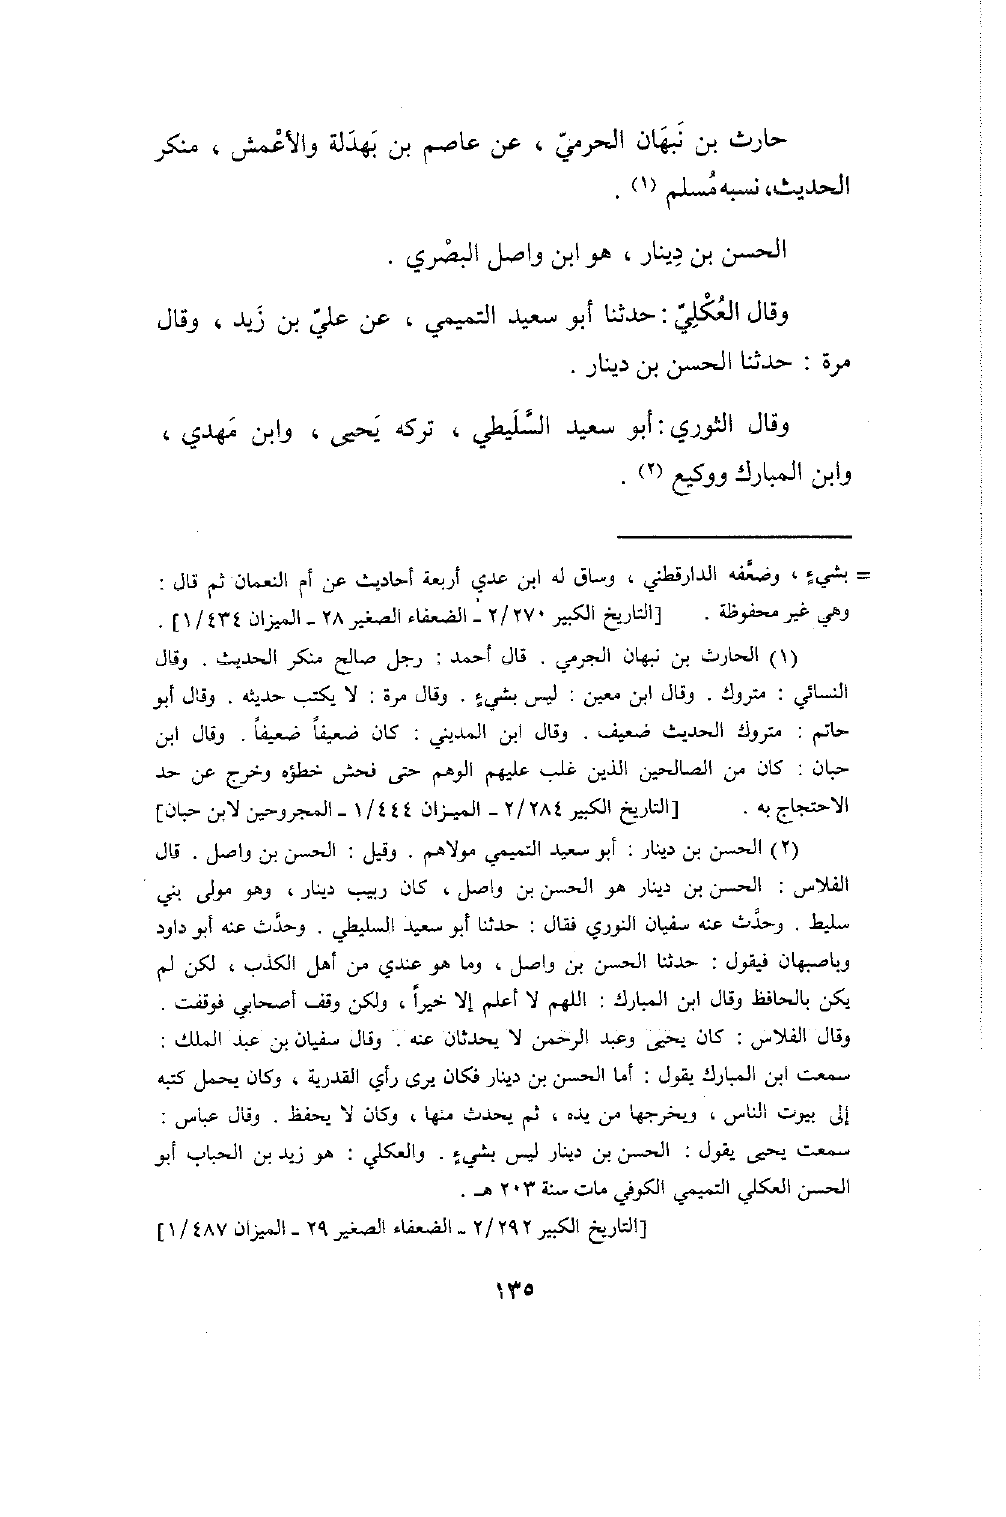 حارث بن نَبهَان الحرميّ ، عن عاصم بن بَهدَلة والأعْمش ، منكر
الحديث، نسبه مُسلم (١) .
الحسن بن دِينار ، هو ابن واصل البصْري .
وقال العُكْلِيّ : حدثنا أبو سعيد التميمي ، عن عليّ بن زَيد ، وقال
مرة : حدثنا الحسن بن دينار .
وقال الثوري : أبو سعيد السَّلَيطي ، تركه يَحيى ، وابن مَهدي ،
وابن المبارك ووكيع (٢) .
= بشيءٍ ، وضعَّفه الدارقطني ، وساق له ابن عدي أربعة أحاديث عن أم النعمان ثم قال :
وهي غير محفوظة . [التاريخ الكبير ٢/٢٧٠ ـ الضعفاء الصغير ٢٨ ـ الميزان ١/٤٣٤] .
(١) الحارث بن نبهان الجرمي . قال أحمد : رجل صالح منكر الحديث . وقال
النسائي : متروك . وقال ابن معين : ليس بشيءٍ . وقال مرة : لا يكتب حديثه . وقال أبو
حاتم : متروك الحديث ضعيف . وقال ابن المديني : كان ضعيفاً ضعيفاً . وقال ابن
حبان : كان من الصالحين الذين غلب عليهم الوهم حتى فحش خطؤه وخرج عن حد
الاحتجاج به . [التاريخ الكبير ٢/٢٨٤ ـ الميزان ١/٤٤٤ ـ المجروحين لابن حبان]
(٢) الحسن بن دينار : أبو سعيد التميمي مولاهم . وقيل : الحسن بن واصل . قال
الفلاس : الحسن بن دينار هو الحسن بن واصل ، كان ربيب دينار ، وهو مولى بني
سليط . وحدَّث عنه سفيان الثوري فقال : حدثنا أبو سعيد السليطي . وحدَّث عنه أبو داود
وباصبهان فيقول : حدثنا الحسن بن واصل ، وما هو عندي من أهل الكذب ، لكن لم
يكن بالحافظ وقال ابن المبارك : اللهم لا أعلم إلا خيراً ، ولكن وقف أصحابي فوقفت .
وقال الفلاس : كان يحيى وعبد الرحمن لا يحدثان عنه . وقال سفيان بن عبد الملك :
سمعت ابن المبارك يقول : أما الحسن بن دينار فكان يرى رأي القدرية ، وكان يحمل كتبه
إلى بيوت الناس ، ويخرجها من يده ، ثم يحدث منها ، وكان لا يحفظ . وقال عباس :
سمعت يحيى يقول : الحسن بن دينار ليس بشيءٍ . والعكلي : هو زيد بن الحباب أبو
الحسن العكلي التميمي الكوفي مات سنة ٢٠٣ هـ .
[التاريخ الكبير ٢/٢٩٢ ـ الضعفاء الصغير ٢٩ ـ الميزان ١/٤٨٧]
١٣٥